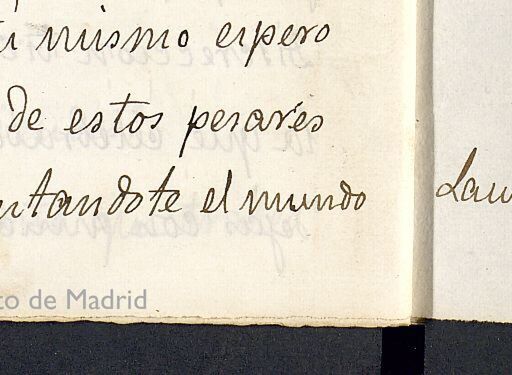 mismo espero
de estos pesares
ntandote el mundo
Lau
to de Madrid